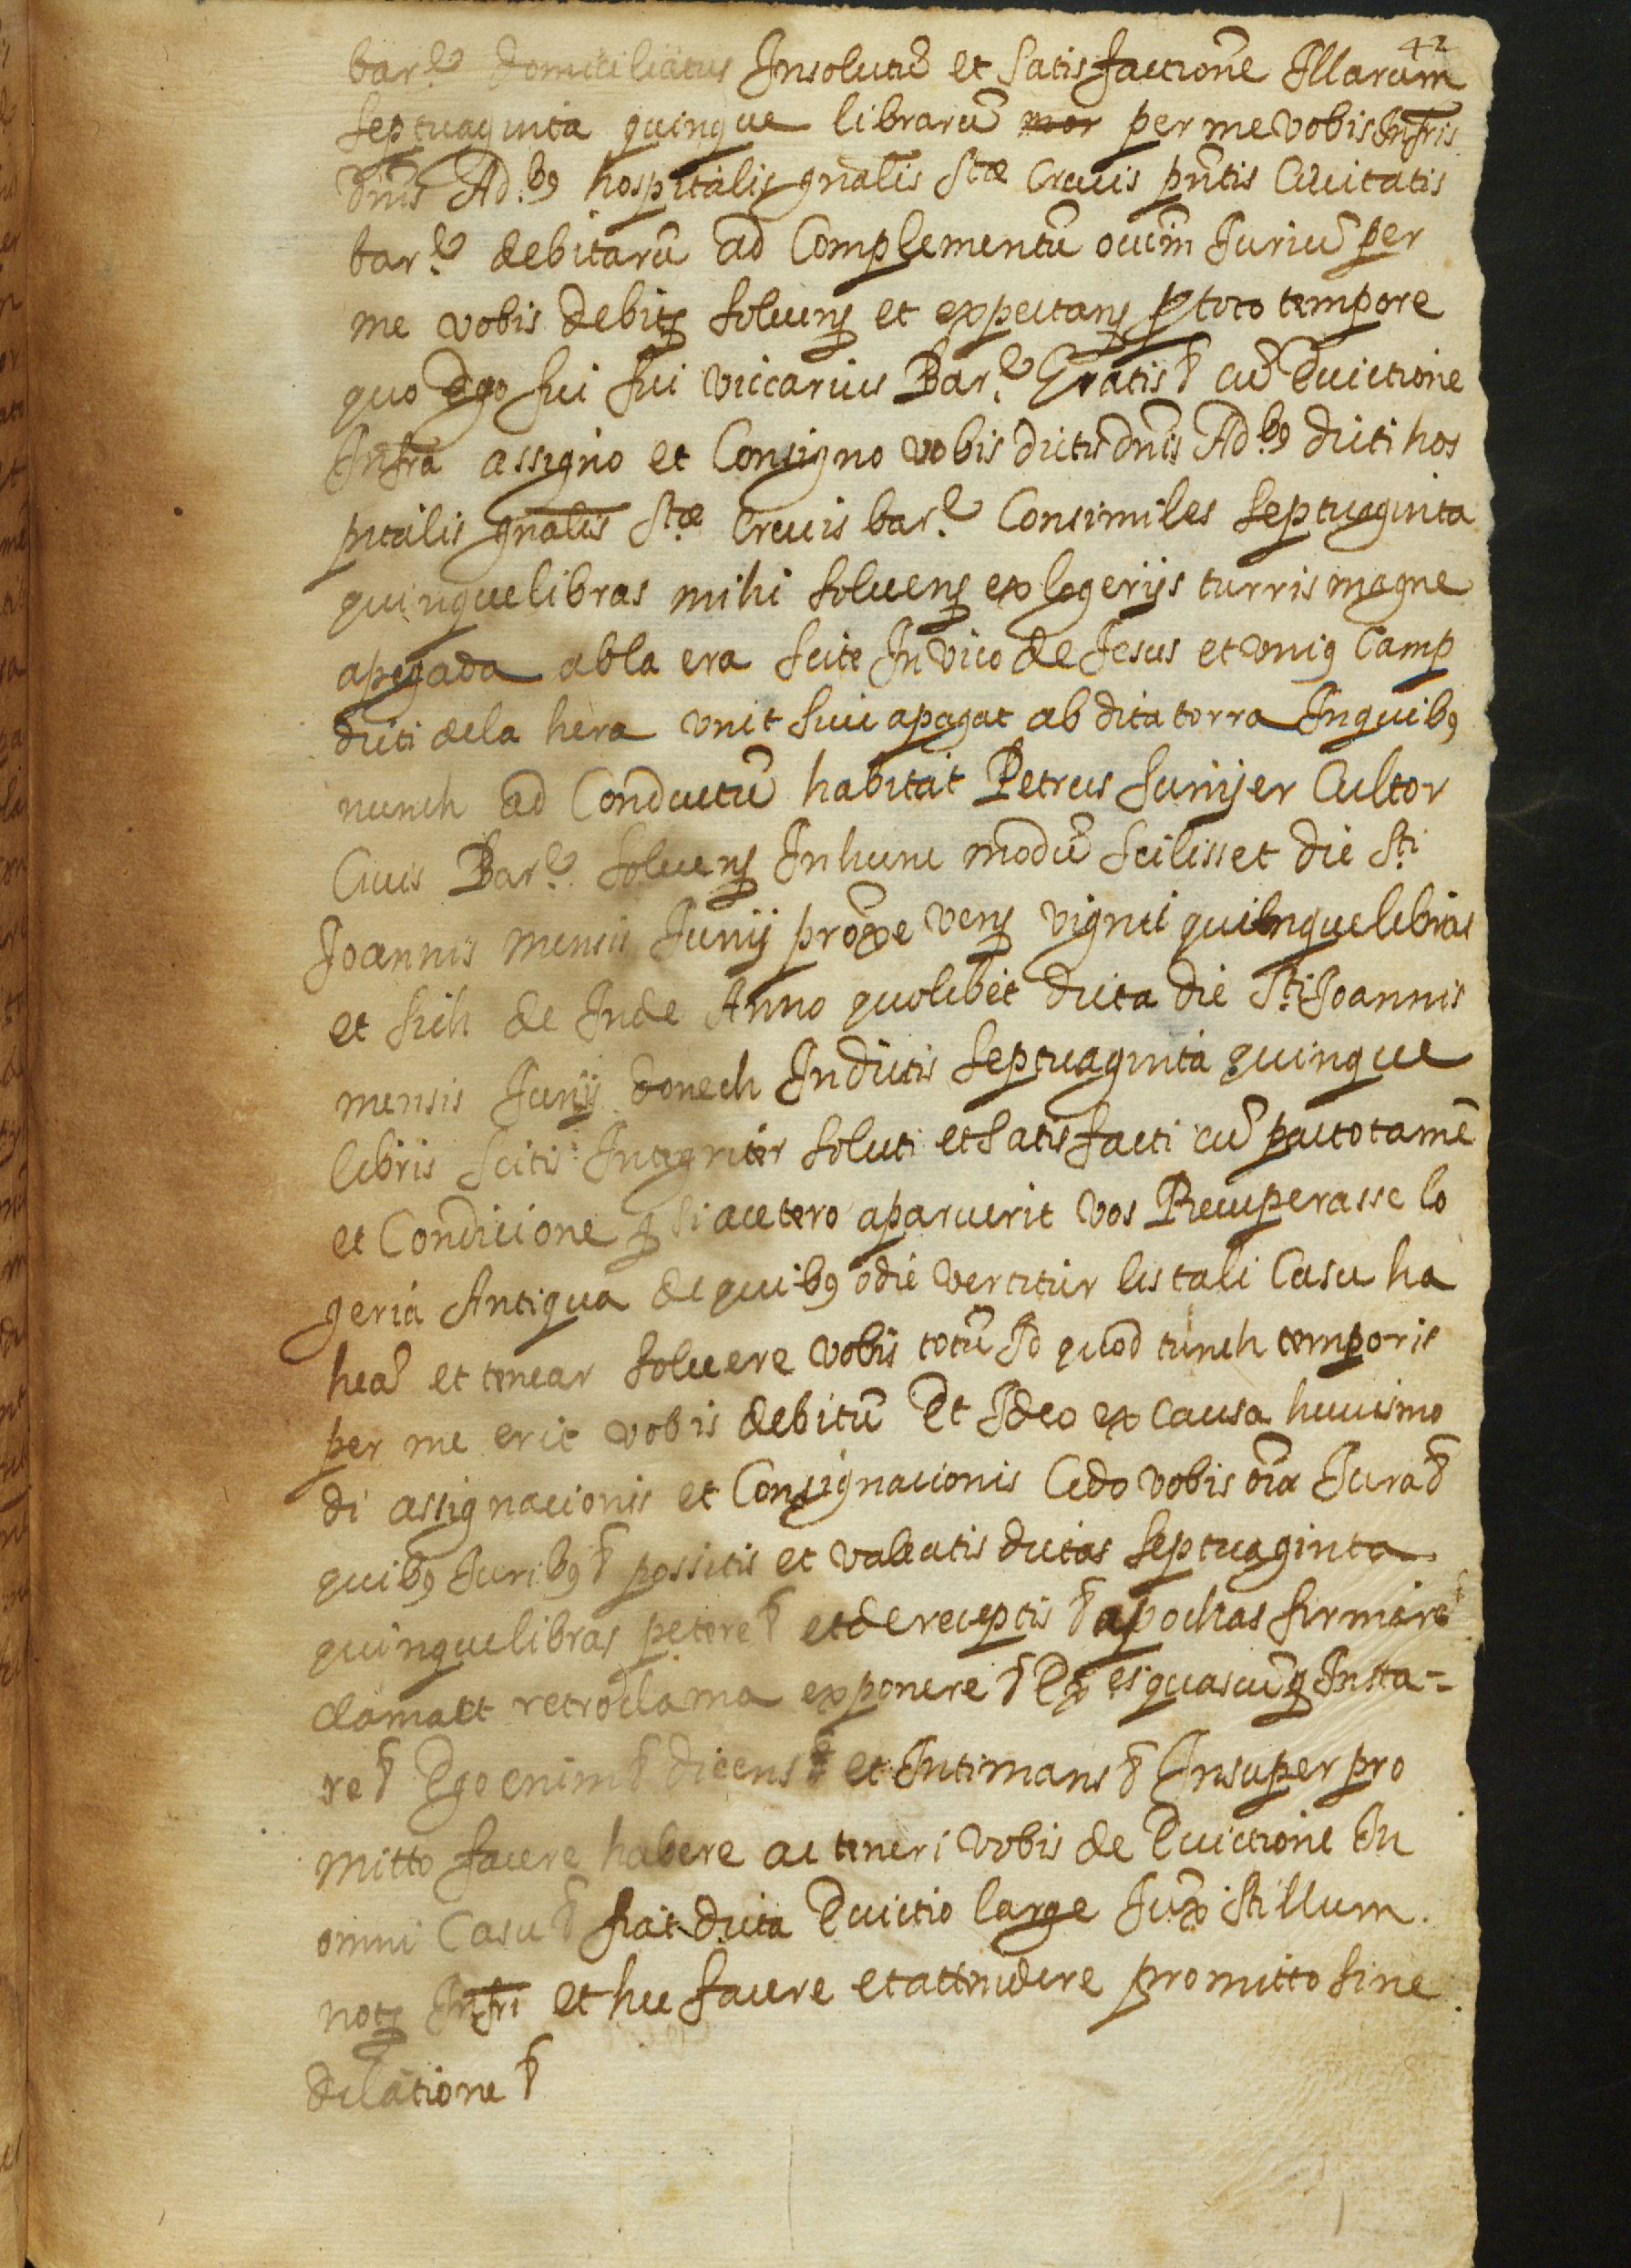 42
bar.e domiciliatus Insolutũ et Satisfactione Illarum
septuaginta quinque librarũ per me vobis Infris
dnis Ad.b9 hospitalis gnalis Stæ Crucis pntis Civitatis
bar.e debitarũ ad Complementũ oium Juriũ per
me vobis debitẓ solvenẓ et expectanẓ ꝑ toto tempore
quo Ego fui sui viccarius Bar.e Gratis & cũ Evictione
Infra assigno et Consigno vobis dictis dnis Ad.b9 dicti hos
pitalis gnalis Stæ Crucis bar.e Consimiles septuaginta
quinque libras mihi solvenẓ ex logerijs turris magne
apegada abla era scite In vico de Jesus et vni9 Camp
dicti de la hera vnit sive apagat ab dita torra Inquib9
nunch ad Conductũ habitat Petrus sunijer Cultor
Civis Bar.e solvenẓ In hunc modũ Scilisset die Sti
Joannis mensis Junij proxe venẓ viginti quinque libras
et sich de Inde Anno quolibet dicta die Sti Joannis
mensis Junij donech Indictis septuaginta quinque
libris scitis Integriter soluti et satisfacti cũ pacto tamẽ
et Condicione ꝙ si acetero aparuerit vos Recuperasse lo
geria Antiqua de quib9 odie vertitur lis tali Casu ha
hea et tenear solvere vobis totũ Id quod tunch temporis
per me erit vobis debitũ Et Ideo ex causa huuismo
di assignacionis et Consignacionis Cedo vobis oia Jura &
quib9 Jurib9 & possitis et valeatis dictas septuaginta
quinque libras petere & et de receptis & apochas firmare &
clamaet retroclama exponere & Ex es quascũq Insta=
re & Ego enim & dicens & et Intimans & Insuper pro
mitto facere habere ac teneri vobis de Evictione In
omni Casu & fiat dicta Evictio large Jux Stillum
notẓ Infri et hec facere et attendere promitto sine
dilatione &